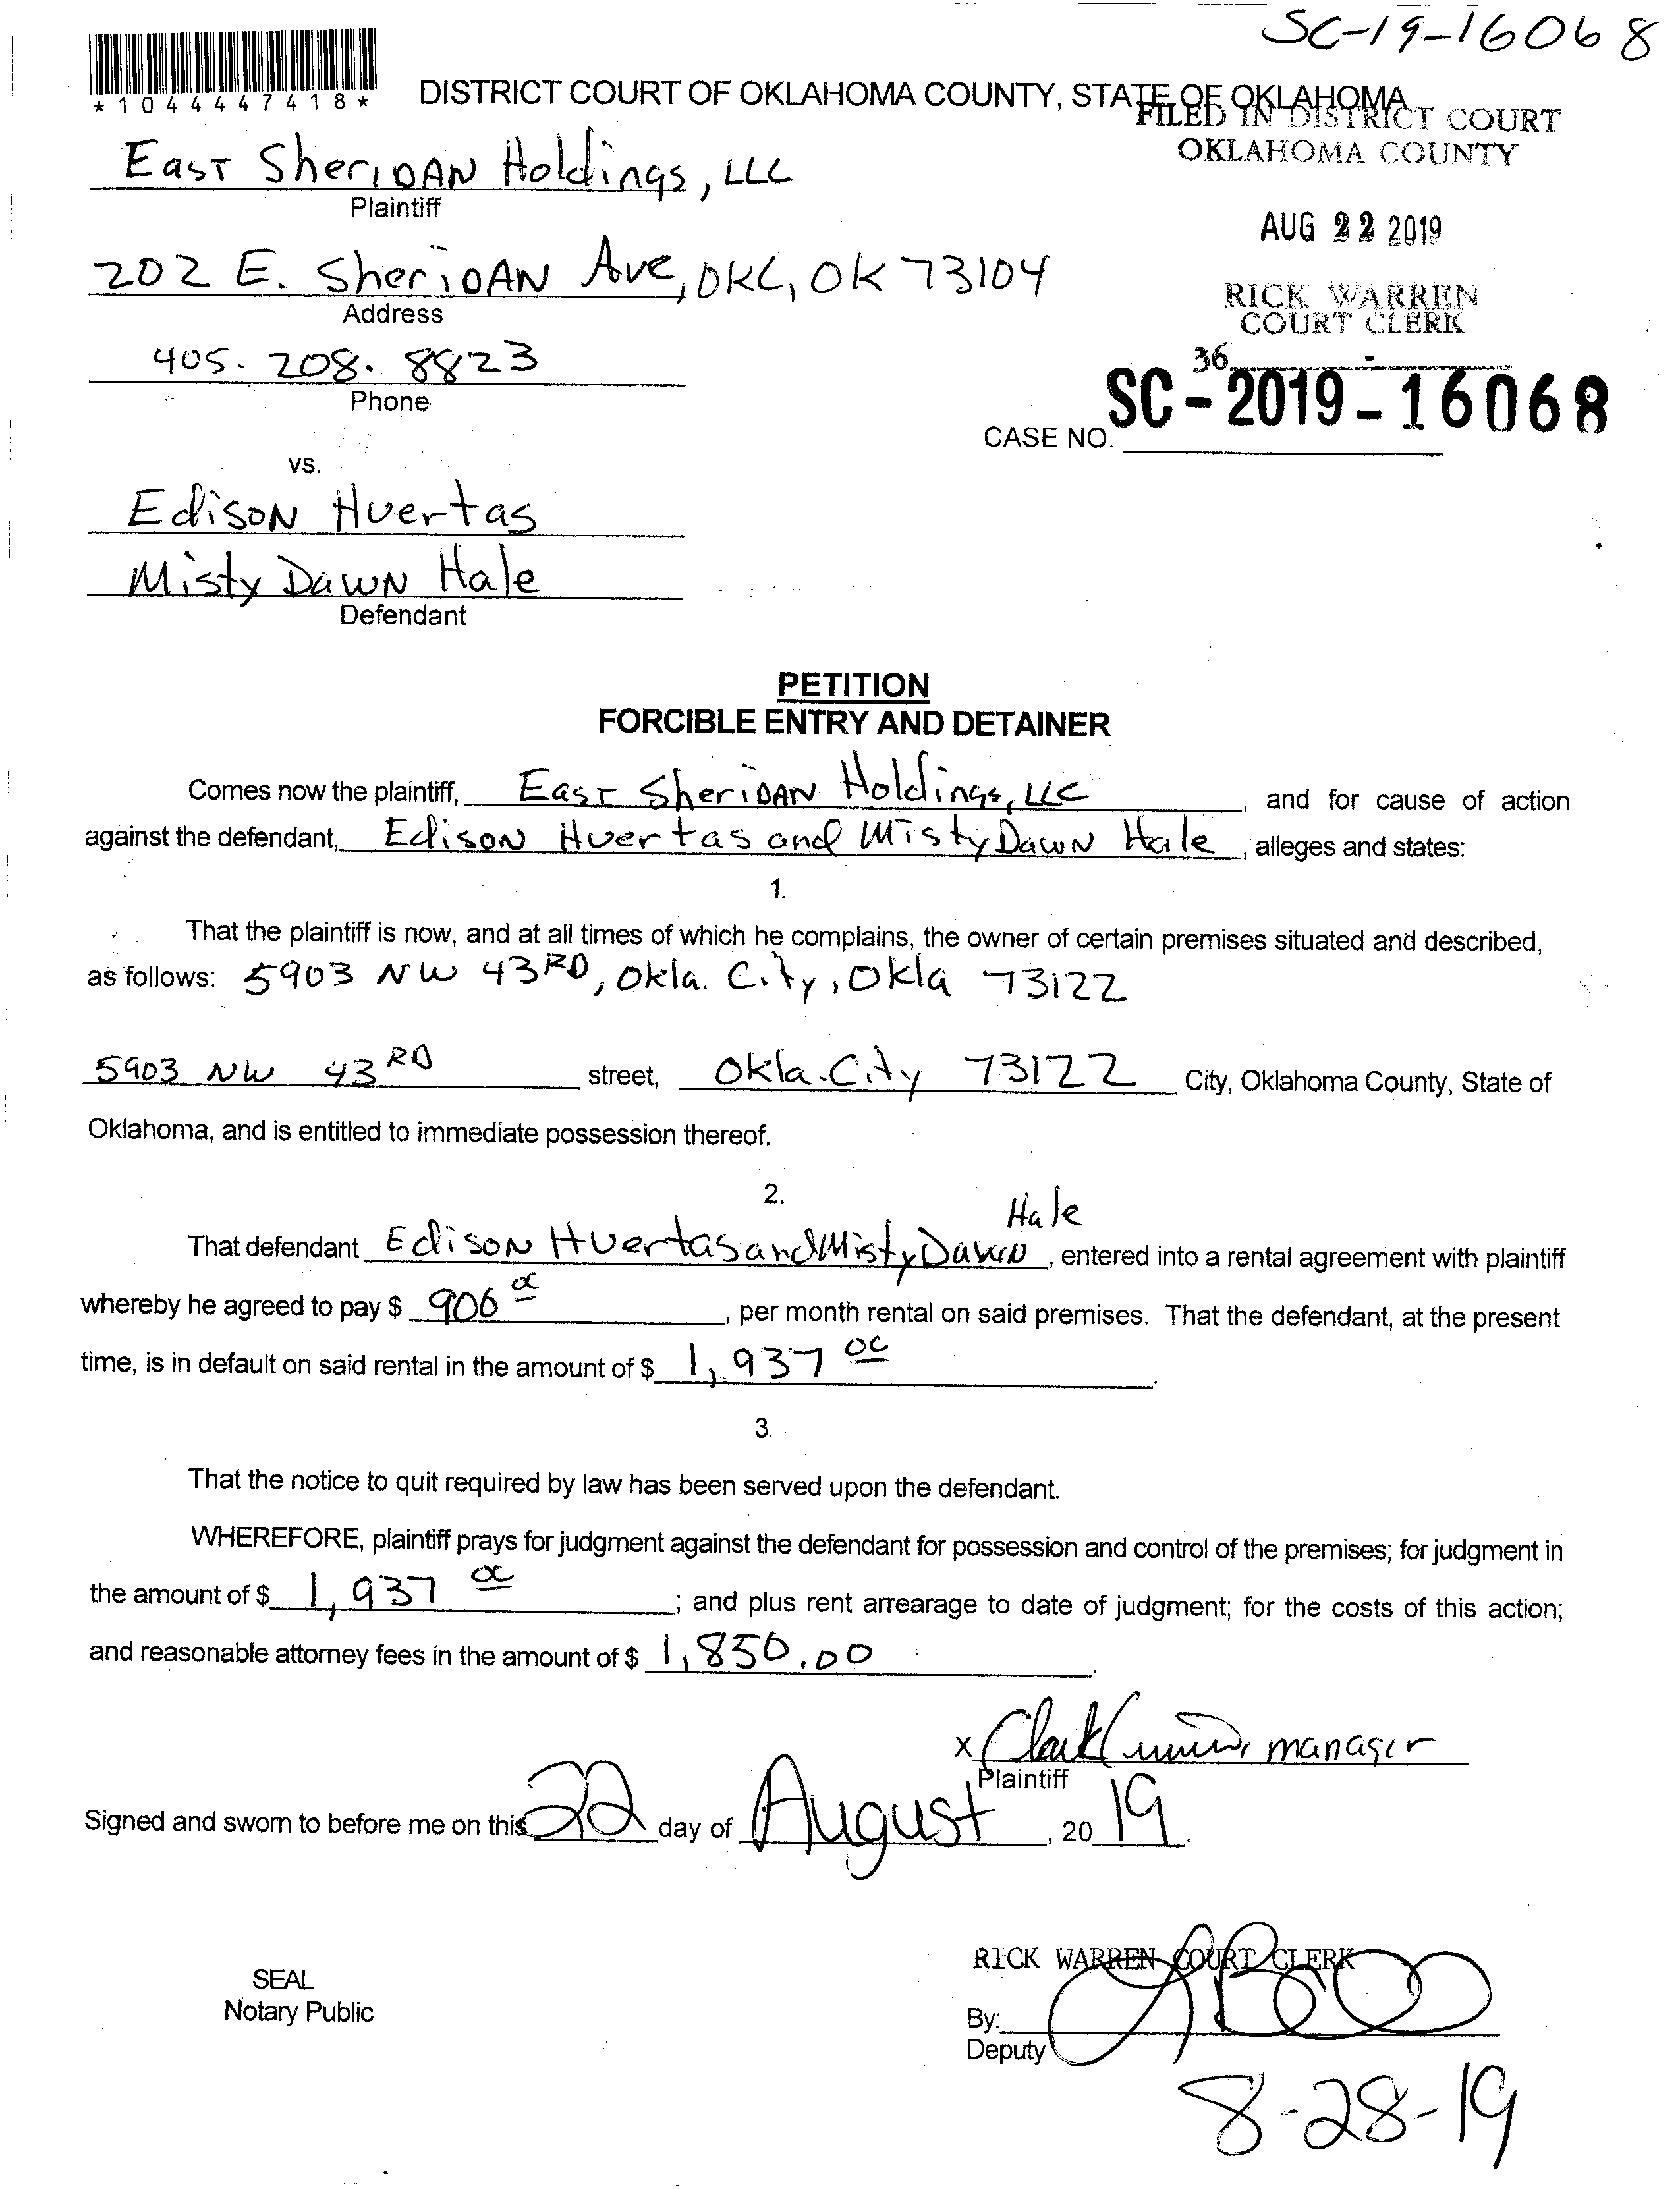 SC-19-16068
*1044447418*
DISTRICT COURT OF OKLAHOMA COUNTY, STATE OF OKLAHOMA
FILED IN DISTRICT COURT
OKLAHOMA COUNTY
East Sheridan Holdings, LLC
Plaintiff
AUG 22 2019
202 E. Sheridan Ave, OKC, OK 73104
Address
RICK WARREN
COURT CLERK
405. 208. 8823
Phone
36
SC-2019-16068
CASE NO.
vs.
Edison Huertas
Misty Dawn Hale
Defendant
PETITION
FORCIBLE ENTRY AND DETAINER
Comes now the plaintiff, East Sheridan Holdings, LLC, and for cause of action
against the defendant, Edison Huertas and Misty Dawn Hale, alleges and states:
1.
That the plaintiff is now, and at all times of which he complains, the owner of certain premises situated and described,
as follows: 5903 NW 43RD, Okla. City, Okla 73122
5903 NW 43RD street, Okla. City 73122 City, Oklahoma County, State of
Oklahoma, and is entitled to immediate possession thereof.
2.
Hale
That defendant Edison Huertas and Misty Dawn, entered into a rental agreement with plaintiff
whereby he agreed to pay $ 906 00, per month rental on said premises. That the defendant, at the present
time, is in default on said rental in the amount of $ 1,937 00.
3.
That the notice to quit required by law has been served upon the defendant.
WHEREFORE, plaintiff prays for judgment against the defendant for possession and control of the premises; for judgment in
the amount of $ 1,937 00; and plus rent arrearage to date of judgment; for the costs of this action;
and reasonable attorney fees in the amount of $ 1,850.00.
x Clark manager
Plaintiff
Signed and sworn to before me on this 22 day of August, 2019.
RICK WARREN COURT CLERK
SEAL
Notary Public
By:
Deputy
8-28-19